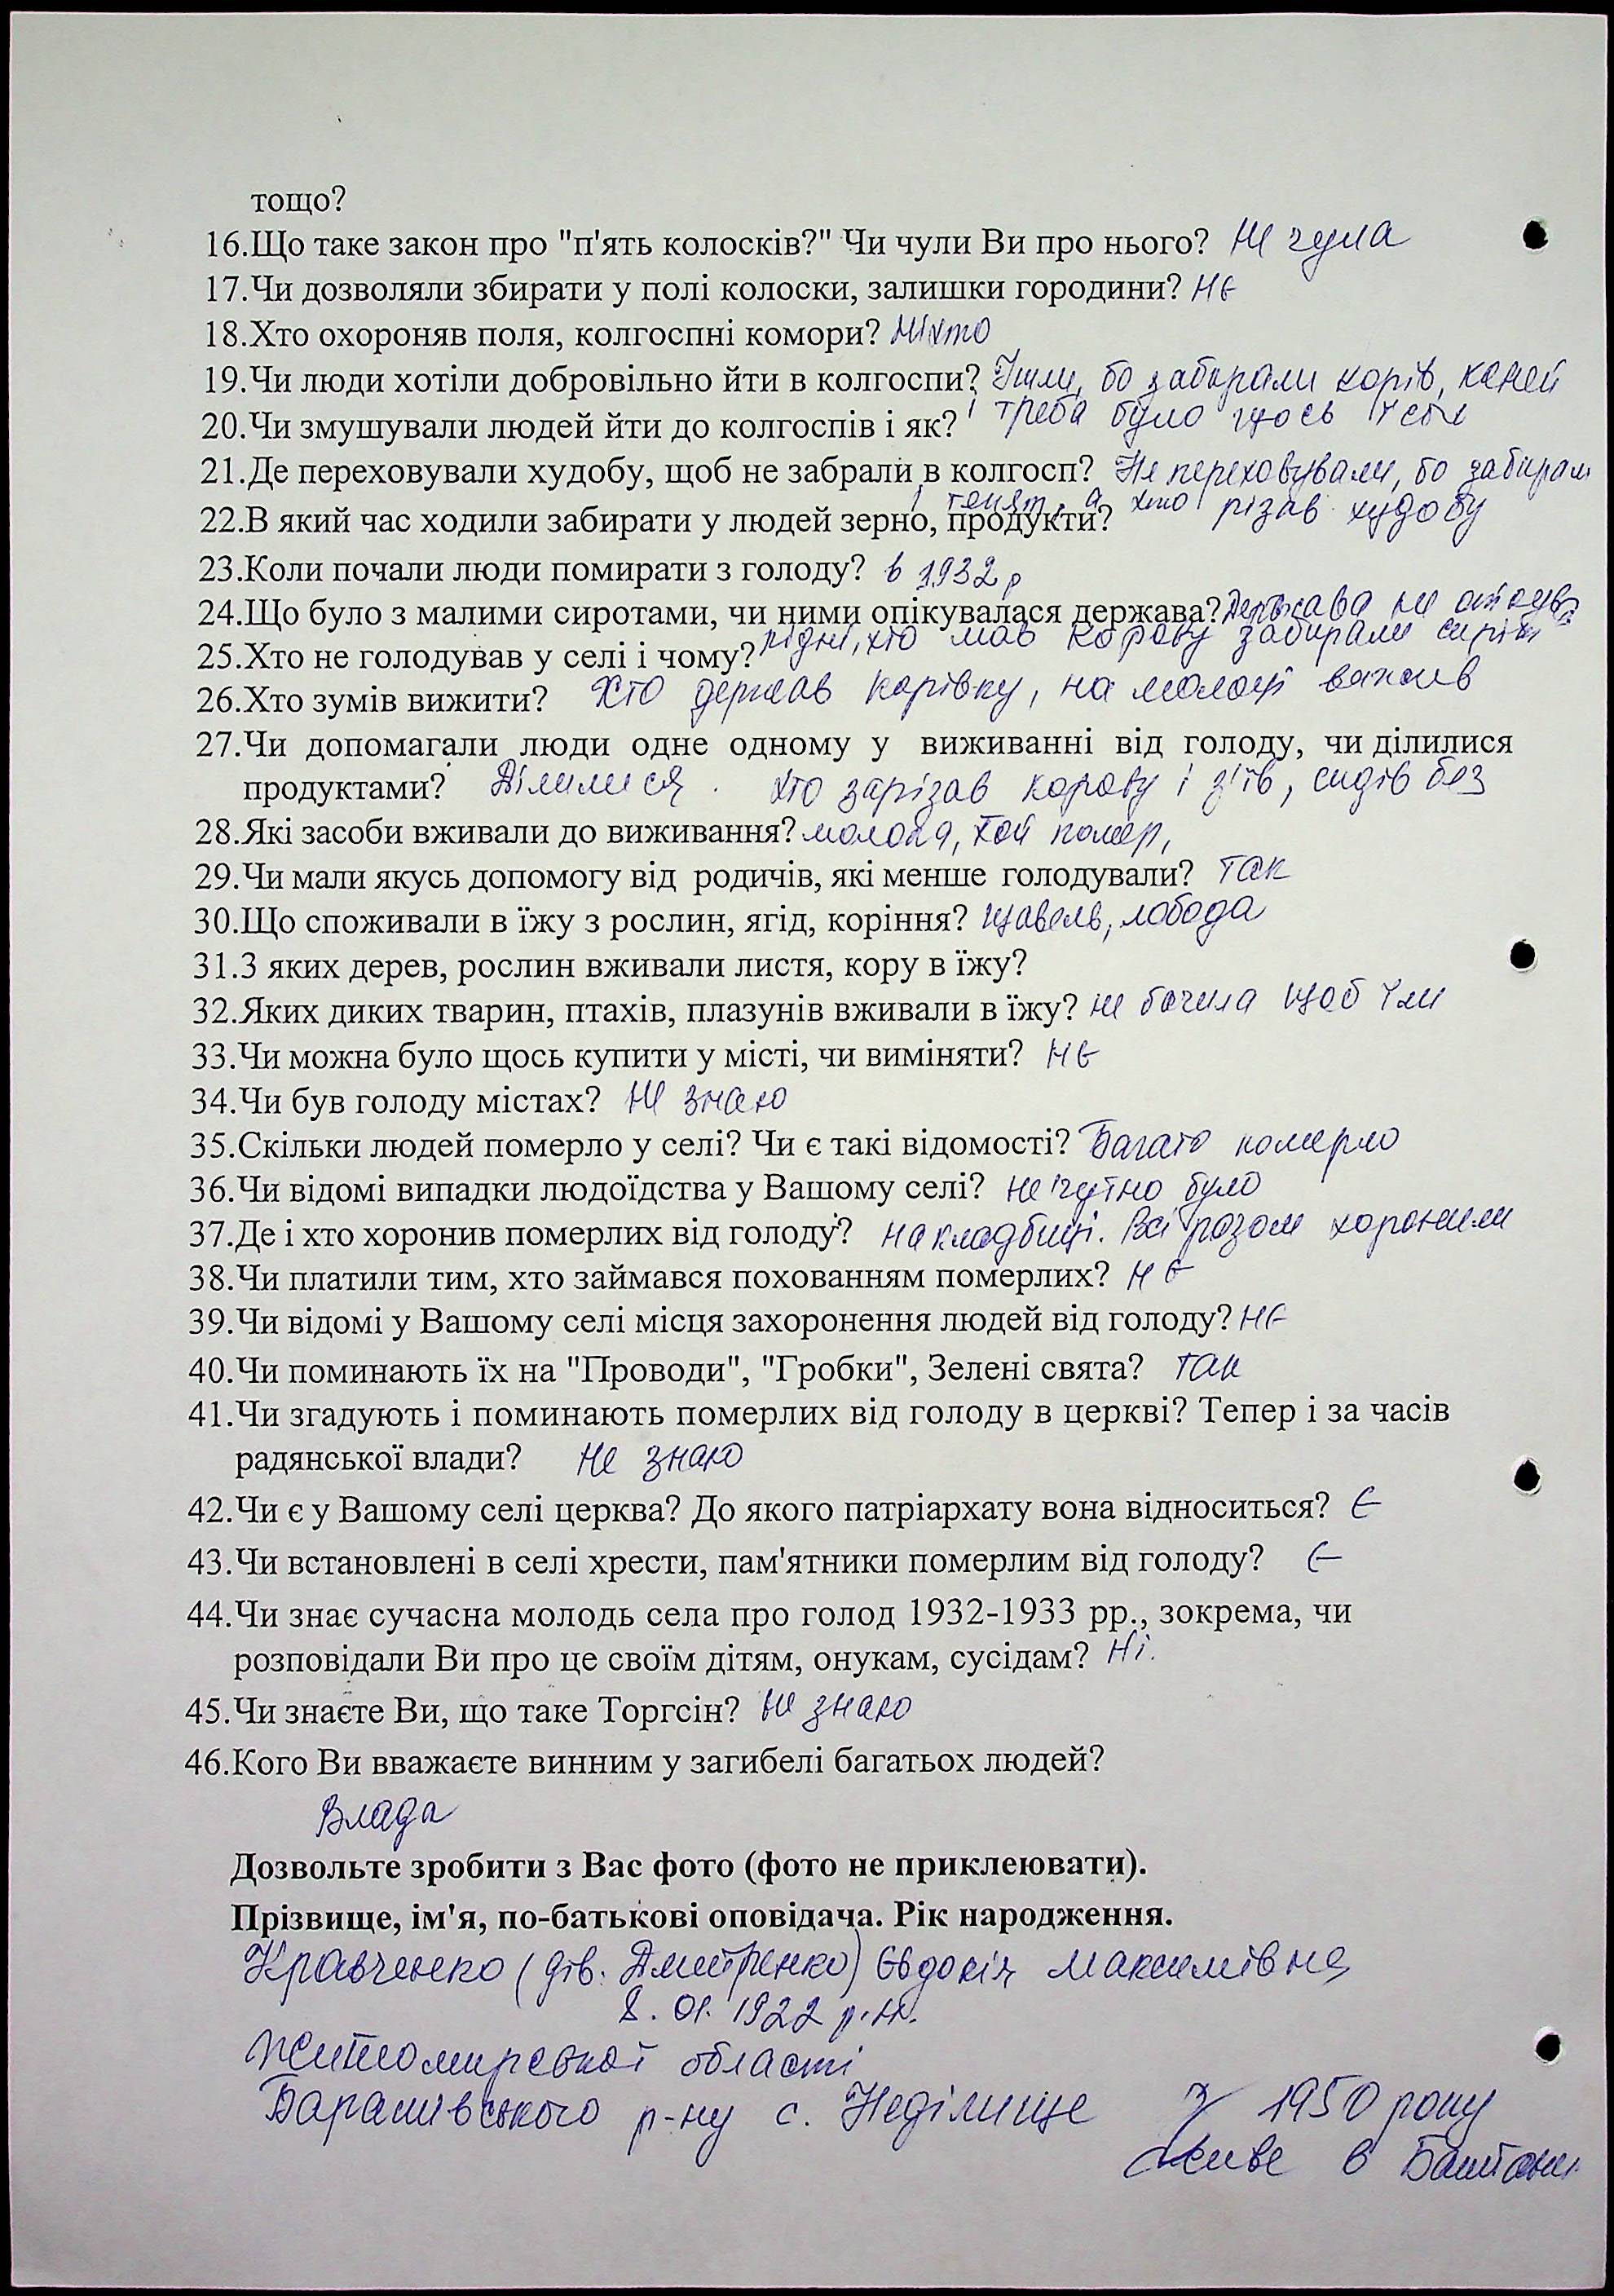 тощо?
16.Що таке закон про "п'ять колосків?" Чи чули Ви про нього? Не чула
17.Чи дозволяли збирати у полі колоски, залишки городини? Не
18.Хто охороняв поля, колгоспні комори? Ніхто
19.Чи люди хотіли добровільно йти в колгоспи? Ішли, бо забирали корів, коней
20.Чи змушували людей йти до колгоспів і як? і треба було щось їсти
21.Де переховували худобу, щоб не забрали в колгосп? Не переховували, бо забирали
і телят, а хто різав худобу
22.В який час ходили забирати у людей зерно, продукти?
23.Коли почали люди помирати з голоду? в 1932 р
24.Що було з малими сиротами, чи ними опікувалася держава? Держава не
25.Хто не голодував у селі і чому? рідні, хто мав корову забирали сиріт
26.Хто зумів вижити? Хто держав корівку, на молоці вижив
27.Чи допомагали люди одне одному у виживанні від голоду, чи ділилися
продуктами? Ділилися. Хто зарізав корову і з'їв, сидів без
28.Які засоби вживали до виживання? молока, той помер,
29.Чи мали якусь допомогу від родичів, які менше голодували? так
30.Що споживали в їжу з рослин, ягід, коріння? щавель, лобода
31.З яких дерев, рослин вживали листя, кору в їжу?
32.Яких диких тварин, птахів, плазунів вживали в їжу? не бачила щоб їли
33.Чи можна було щось купити у місті, чи виміняти? Не
34.Чи був голоду містах? Не знаю
35.Скільки людей померло у селі? Чи є такі відомості? Багато померло
36.Чи відомі випадки людоїдства у Вашому селі? не чутно було
37.Де і хто хоронив померлих від голоду? на кладбищі. Всі разом хоронили
38.Чи платили тим, хто займався похованням померлих? Не
39.Чи відомі у Вашому селі місця захоронення людей від голоду? Не
40.Чи поминають їх на "Проводи", "Гробки", Зелені свята? так
41.Чи згадують і поминають померлих від голоду в церкві? Тепер і за часів
радянської влади? Не знаю
42.Чи є у Вашому селі церква? До якого патріархату вона відноситься? Є
43.Чи встановлені в селі хрести, пам'ятники померлим від голоду? Є
44.Чи знає сучасна молодь села про голод 1932-1933 рр., зокрема, чи
розповідали Ви про це своїм дітям, онукам, сусідам? Ні.
45.Чи знаєте Ви, що таке Торгсін? Не знаю
46.Кого Ви вважаєте винним у загибелі багатьох людей?
Влада
Дозвольте зробити з Вас фото (фото не приклеювати).
Прізвище, ім'я, по-батькові оповідача. Рік народження.
Кравченко (дів. Дмитренко) Євдокія Максимівна,
8. 01. 1922 р.н.
Житомирської області
Баранівського р-ну с. Неділище З 1950 року
живе в